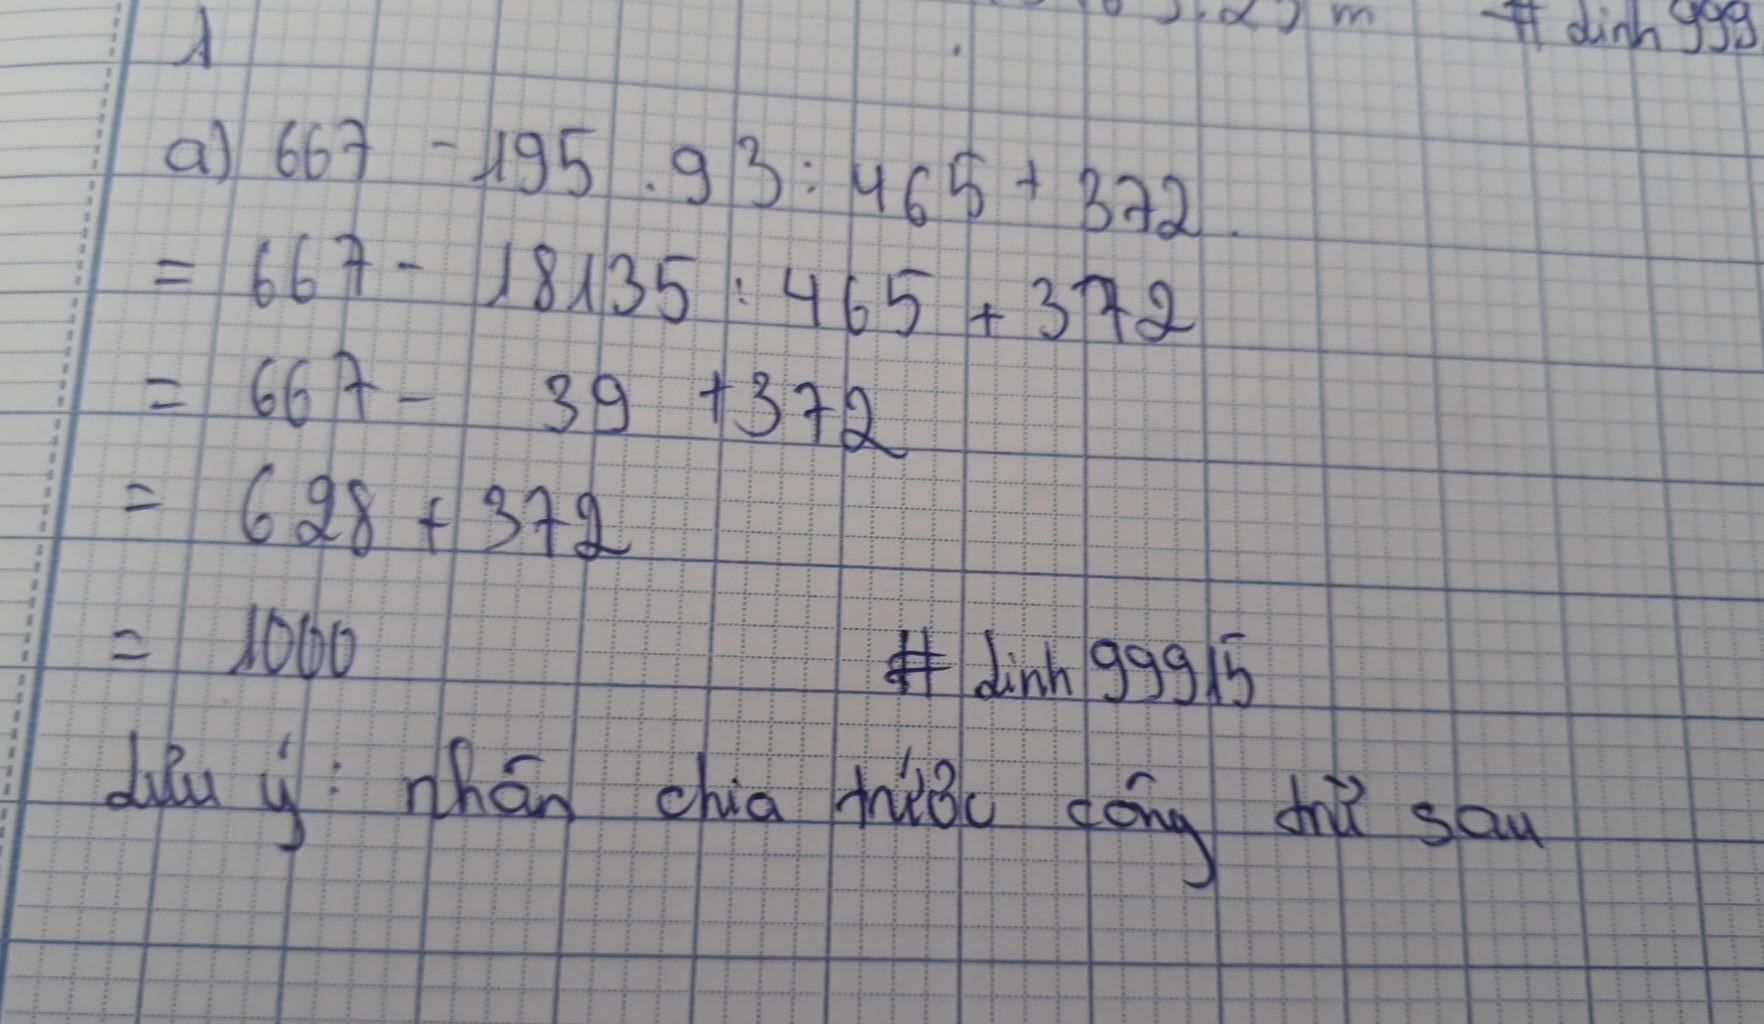 # dinh 999
1
a) 667 - 195 . 93 : 465 + 372.
= 667 - 18135 : 465 + 372
= 667 - 39 + 372
= 628 + 372
= 1000
# dinh 99915
Lưu ý: nhân chia trước cộng trừ sau